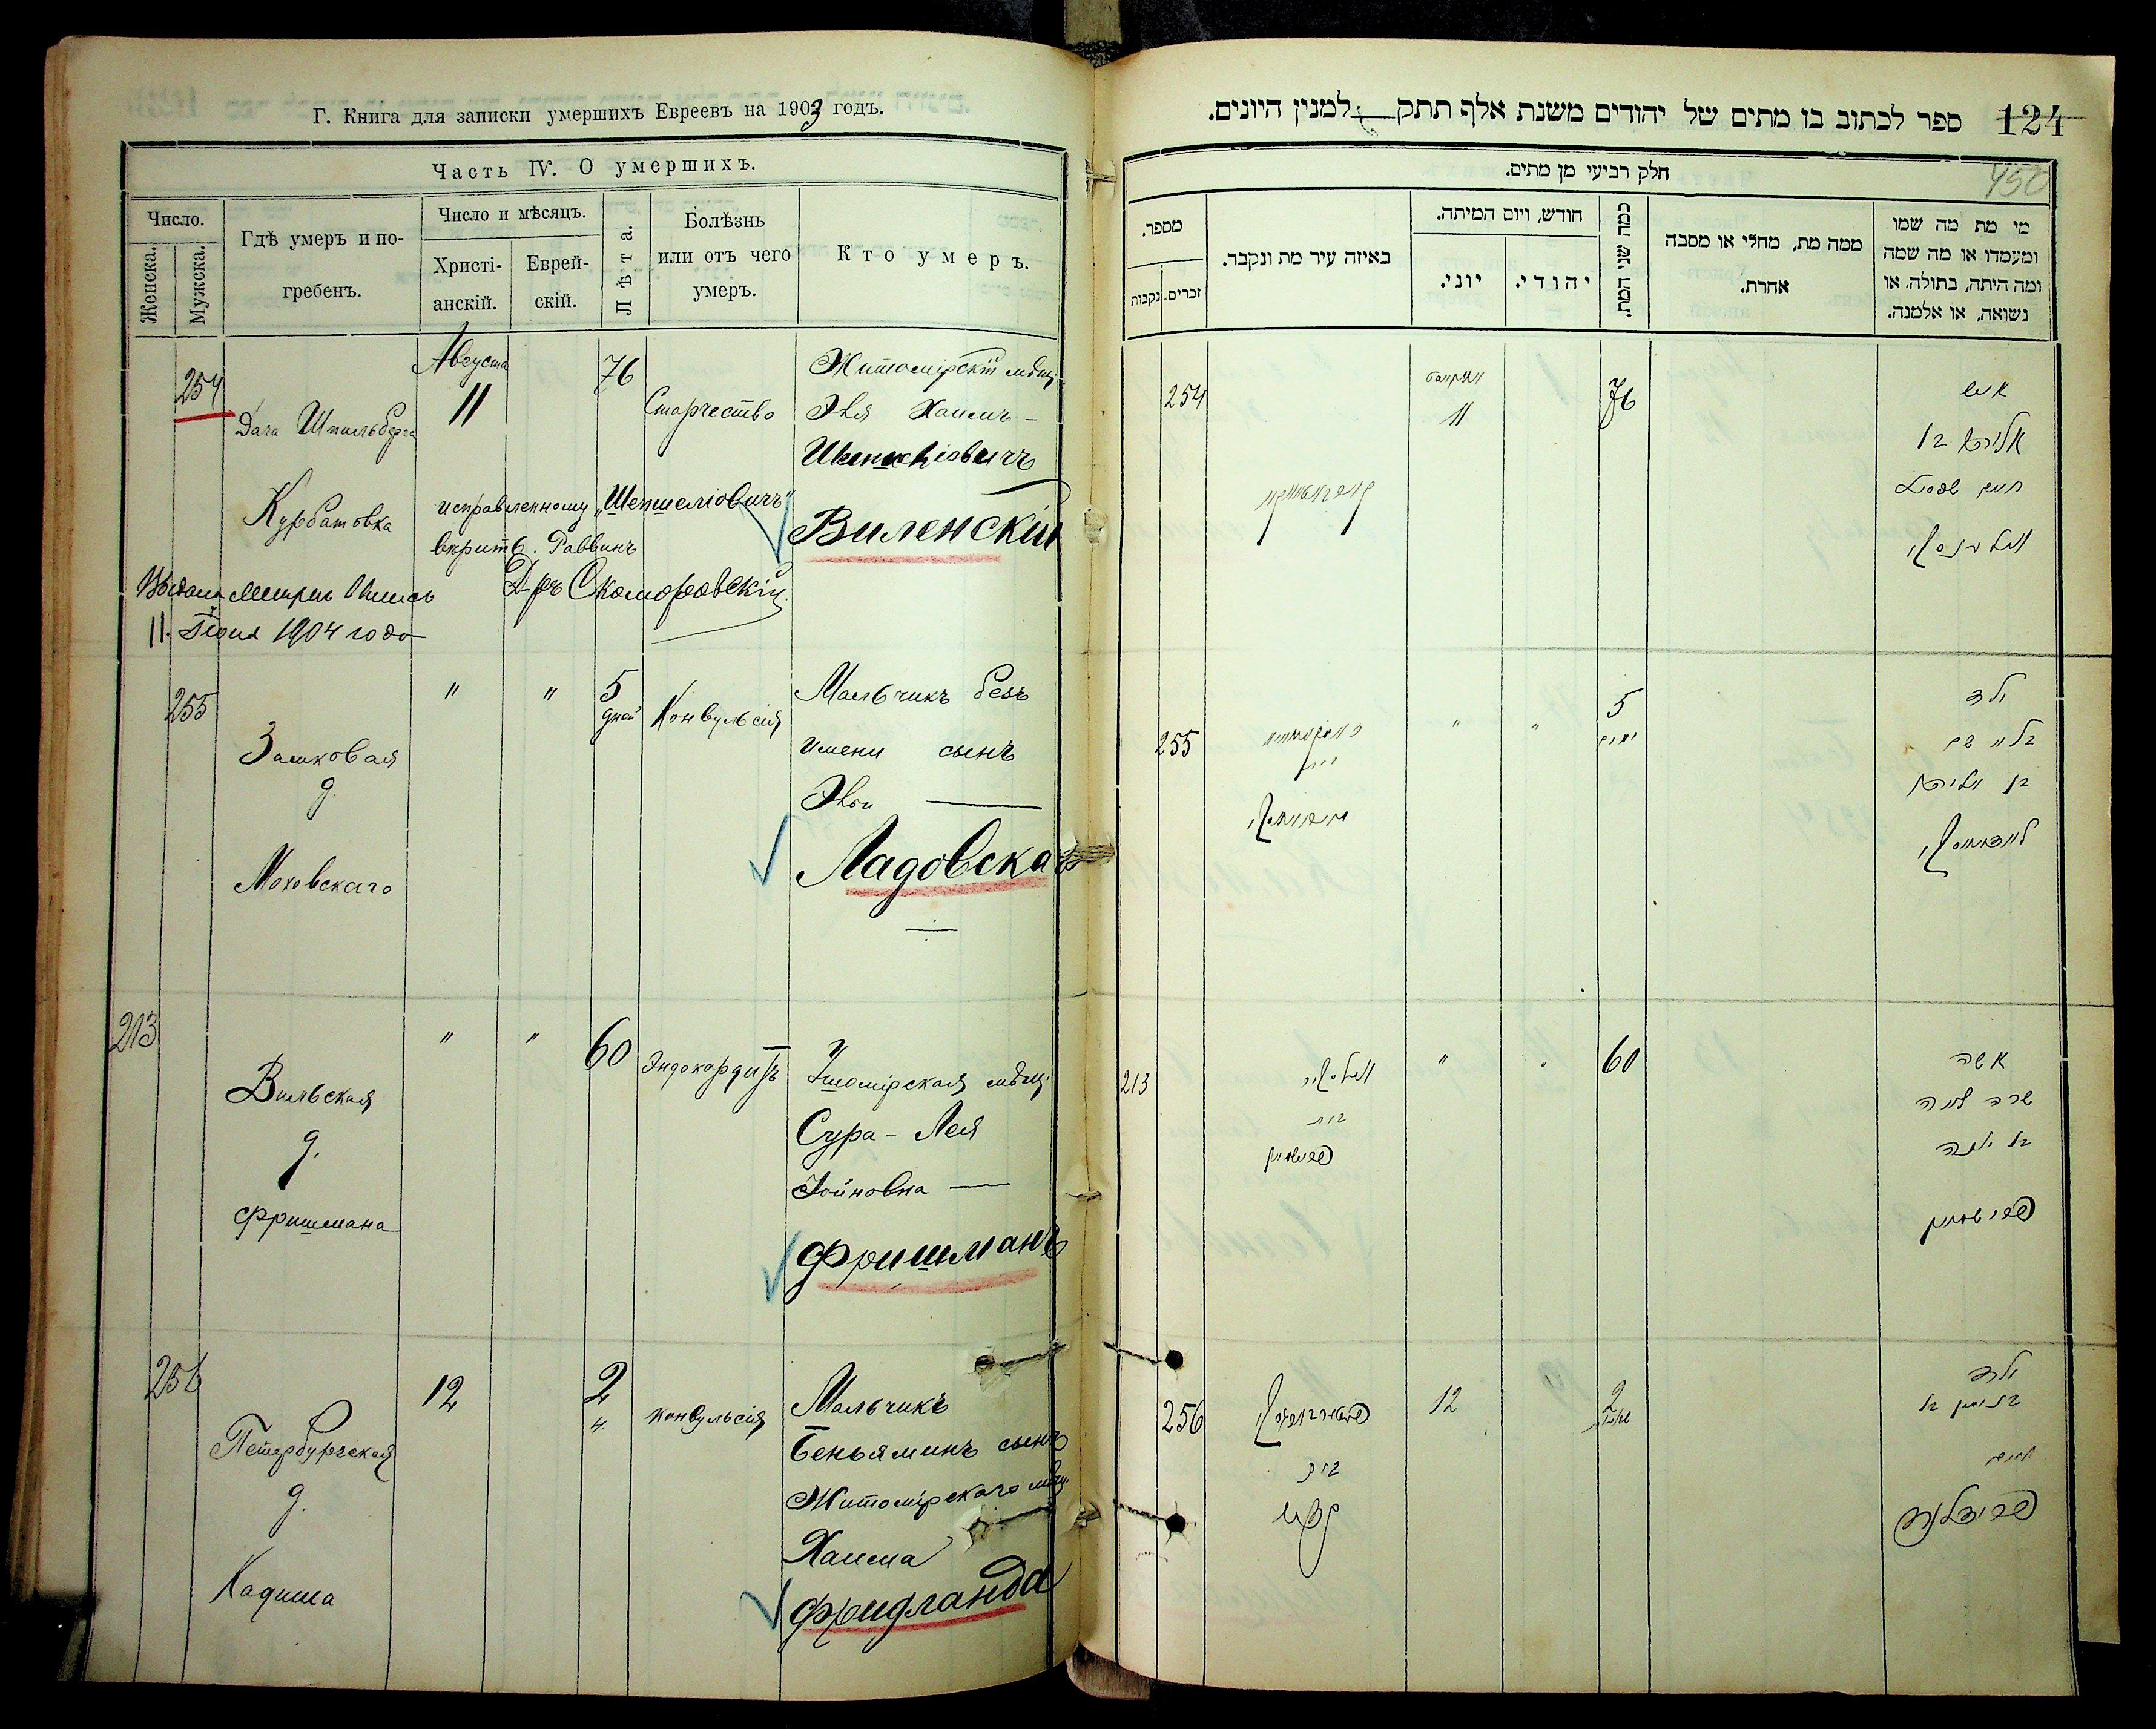 Г. Книга для записки умершихъ Евреевъ на 1903 годъ.
Часть IV. О умершихъ.
Число.
Женска.
Мужска.
Гдѣ умеръ и по-
гребенъ.
Число и мѣсяцъ.
Христі-
анскій.
Еврей-
скій.
Лѣта.
Болѣзнь
или отъ чего
умеръ.
Кто умеръ.
254
Дача Шпильберга
Курбатовка
Августа
11
76
Старчество
Житомірскій мѣщ.
Эля Хаимъ -
Виленскій
исправленному "Шепшеліовичъ"
вѣритъ. Раввинъ
Д-ръ Скоморовскій
11. Іюня 1904 года
255
Замковая
д.
Моховскаго
" "
5
дней
Конвульсія
Мальчикъ безъ
имени сынъ
Эли
Ладовска
213
Вильская
д.
Фришмана
" "
60
Эндокардитъ
Сура - Лея
Іойновна
Фришманъ
256
Петербургская
д.
Кадиша
12
2
ч.
Конвульсія
Мальчикъ
Беньяминъ сынъ
Житомірскаго мѣщ.
Хаима
Фридланда
124
ספר לכתוב בו מתים של יהודים משנת אלף תתק למנין היונים.
450
חלק רביעי מן מתים.
מי מת מה שמו
ומעמדו או מה שמה
ומה היתה, בתולה, או
נשואה, או אלמנה.
ממה מת, מחלי או מסבה
אחרת.
כמה שני המת.
חודש, ויום המיתה.
יהודי.
יוני.
באיזה עיר מת ונקבר.
מספר.
זכרים.
נקבות
254
אויגוסט
11
76
איש
255
" "
5
ימים
ילד
בלי שם
213
בית
פרישמאן
" "
60
אשה
שרה לאה
פרישמאן
256
בית
12
2
ילד
בנימין בן
חיים
פרידלאנד